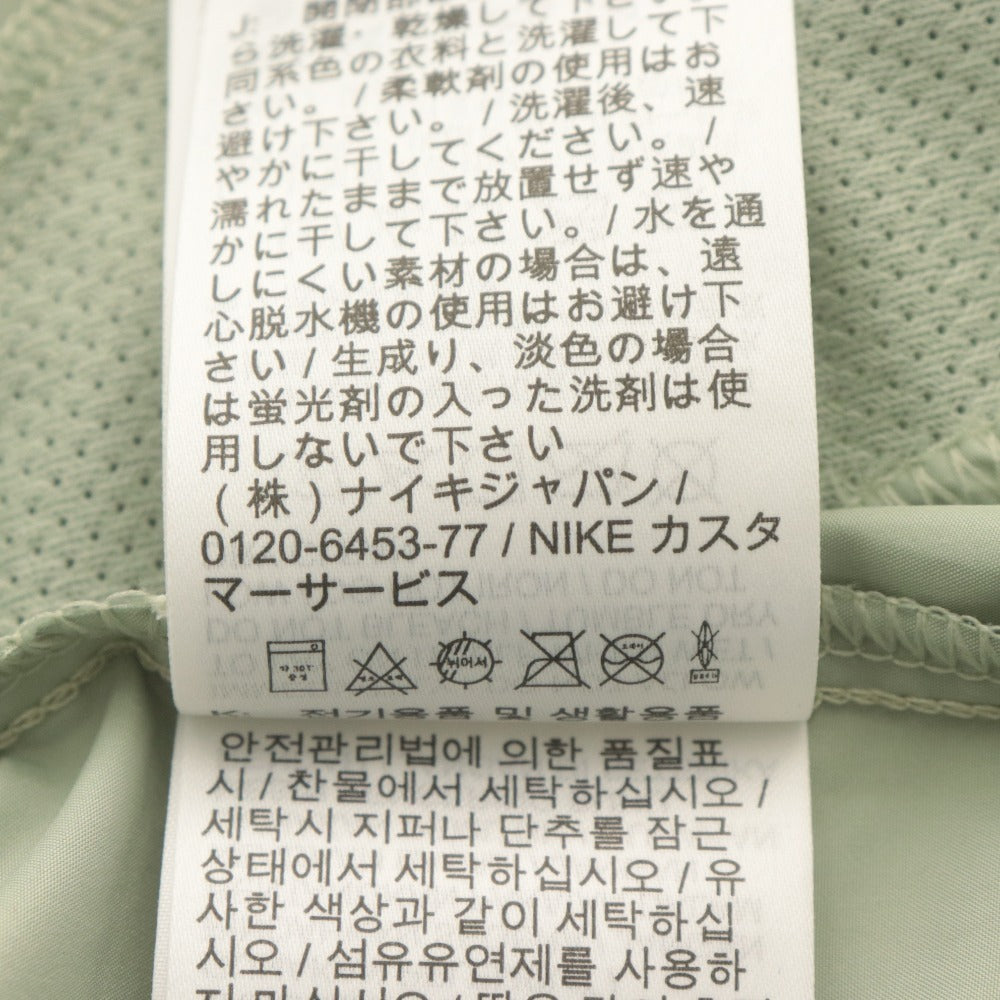 ら洗濯
同系色の衣料と洗濯して
さい。/ 柔軟剤の使用はお
避けください。/ 洗濯後、速
やかに干してください。/
濡れたままで放置せず速や
かに干して下さい。/ 水を通
しにくい素材の場合は、遠
心脱水機の使用はお避け下
さい / 生成り、淡色の場合
は蛍光剤の入った洗剤は使
用しないで下さい
(株)ナイキジャパン /
0120-6453-77 / NIKE カスタ
マーサービス
뉘어서
K: 전기용품 및 생활용품
안전관리법에 의한 품질표
시 / 찬물에서 세탁하십시오 /
세탁시 지퍼나 단추를 잠근
상태에서 세탁하십시오 / 유
사한 색상과 같이 세탁하십
시오 / 섬유유연제를 사용하
지 마십시오 /